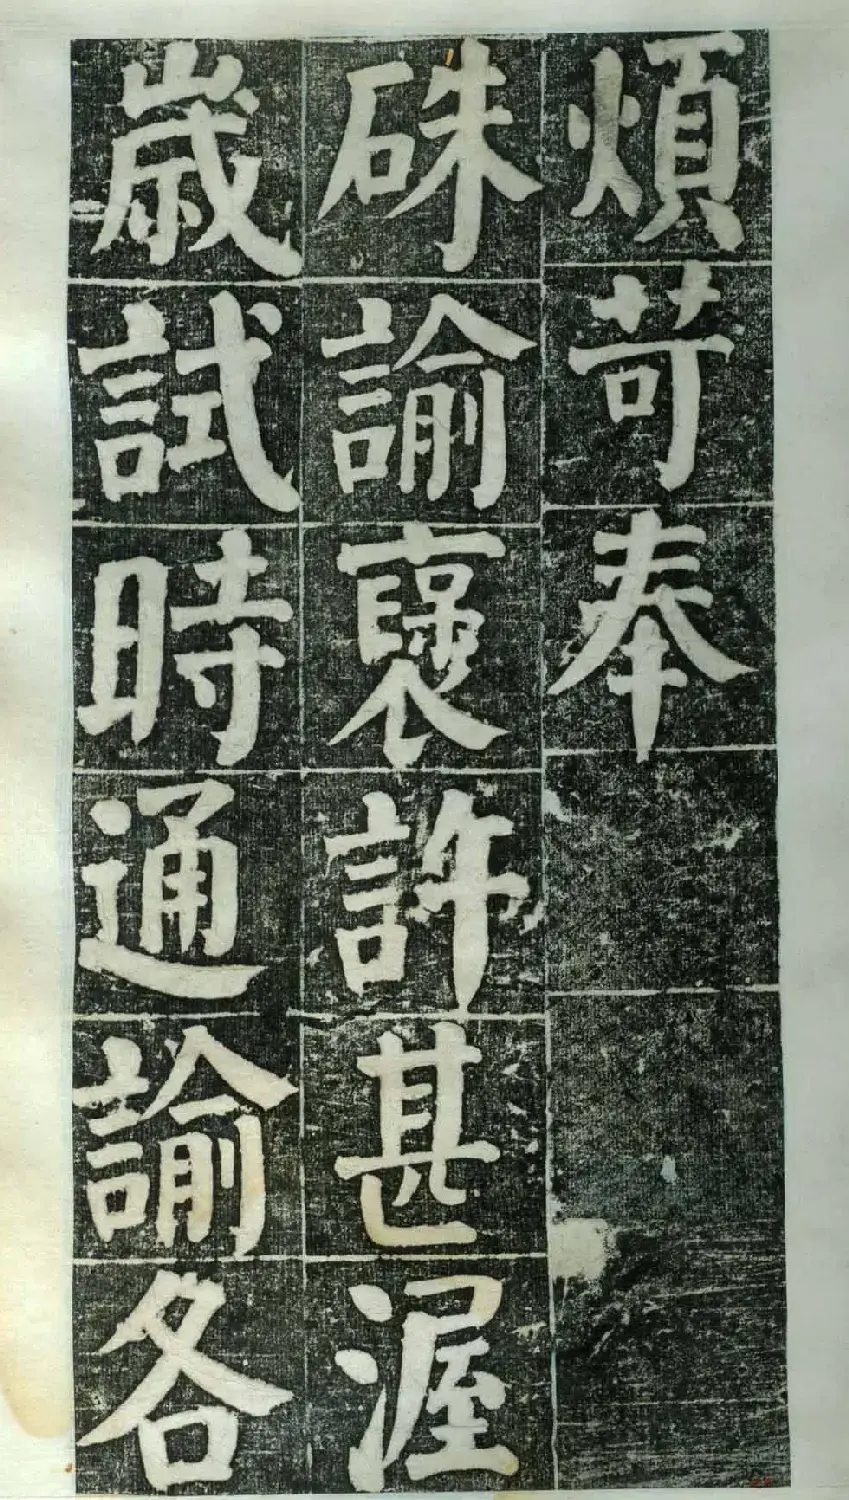 煩苛奉
硃諭褒許甚渥
歲試時通諭各